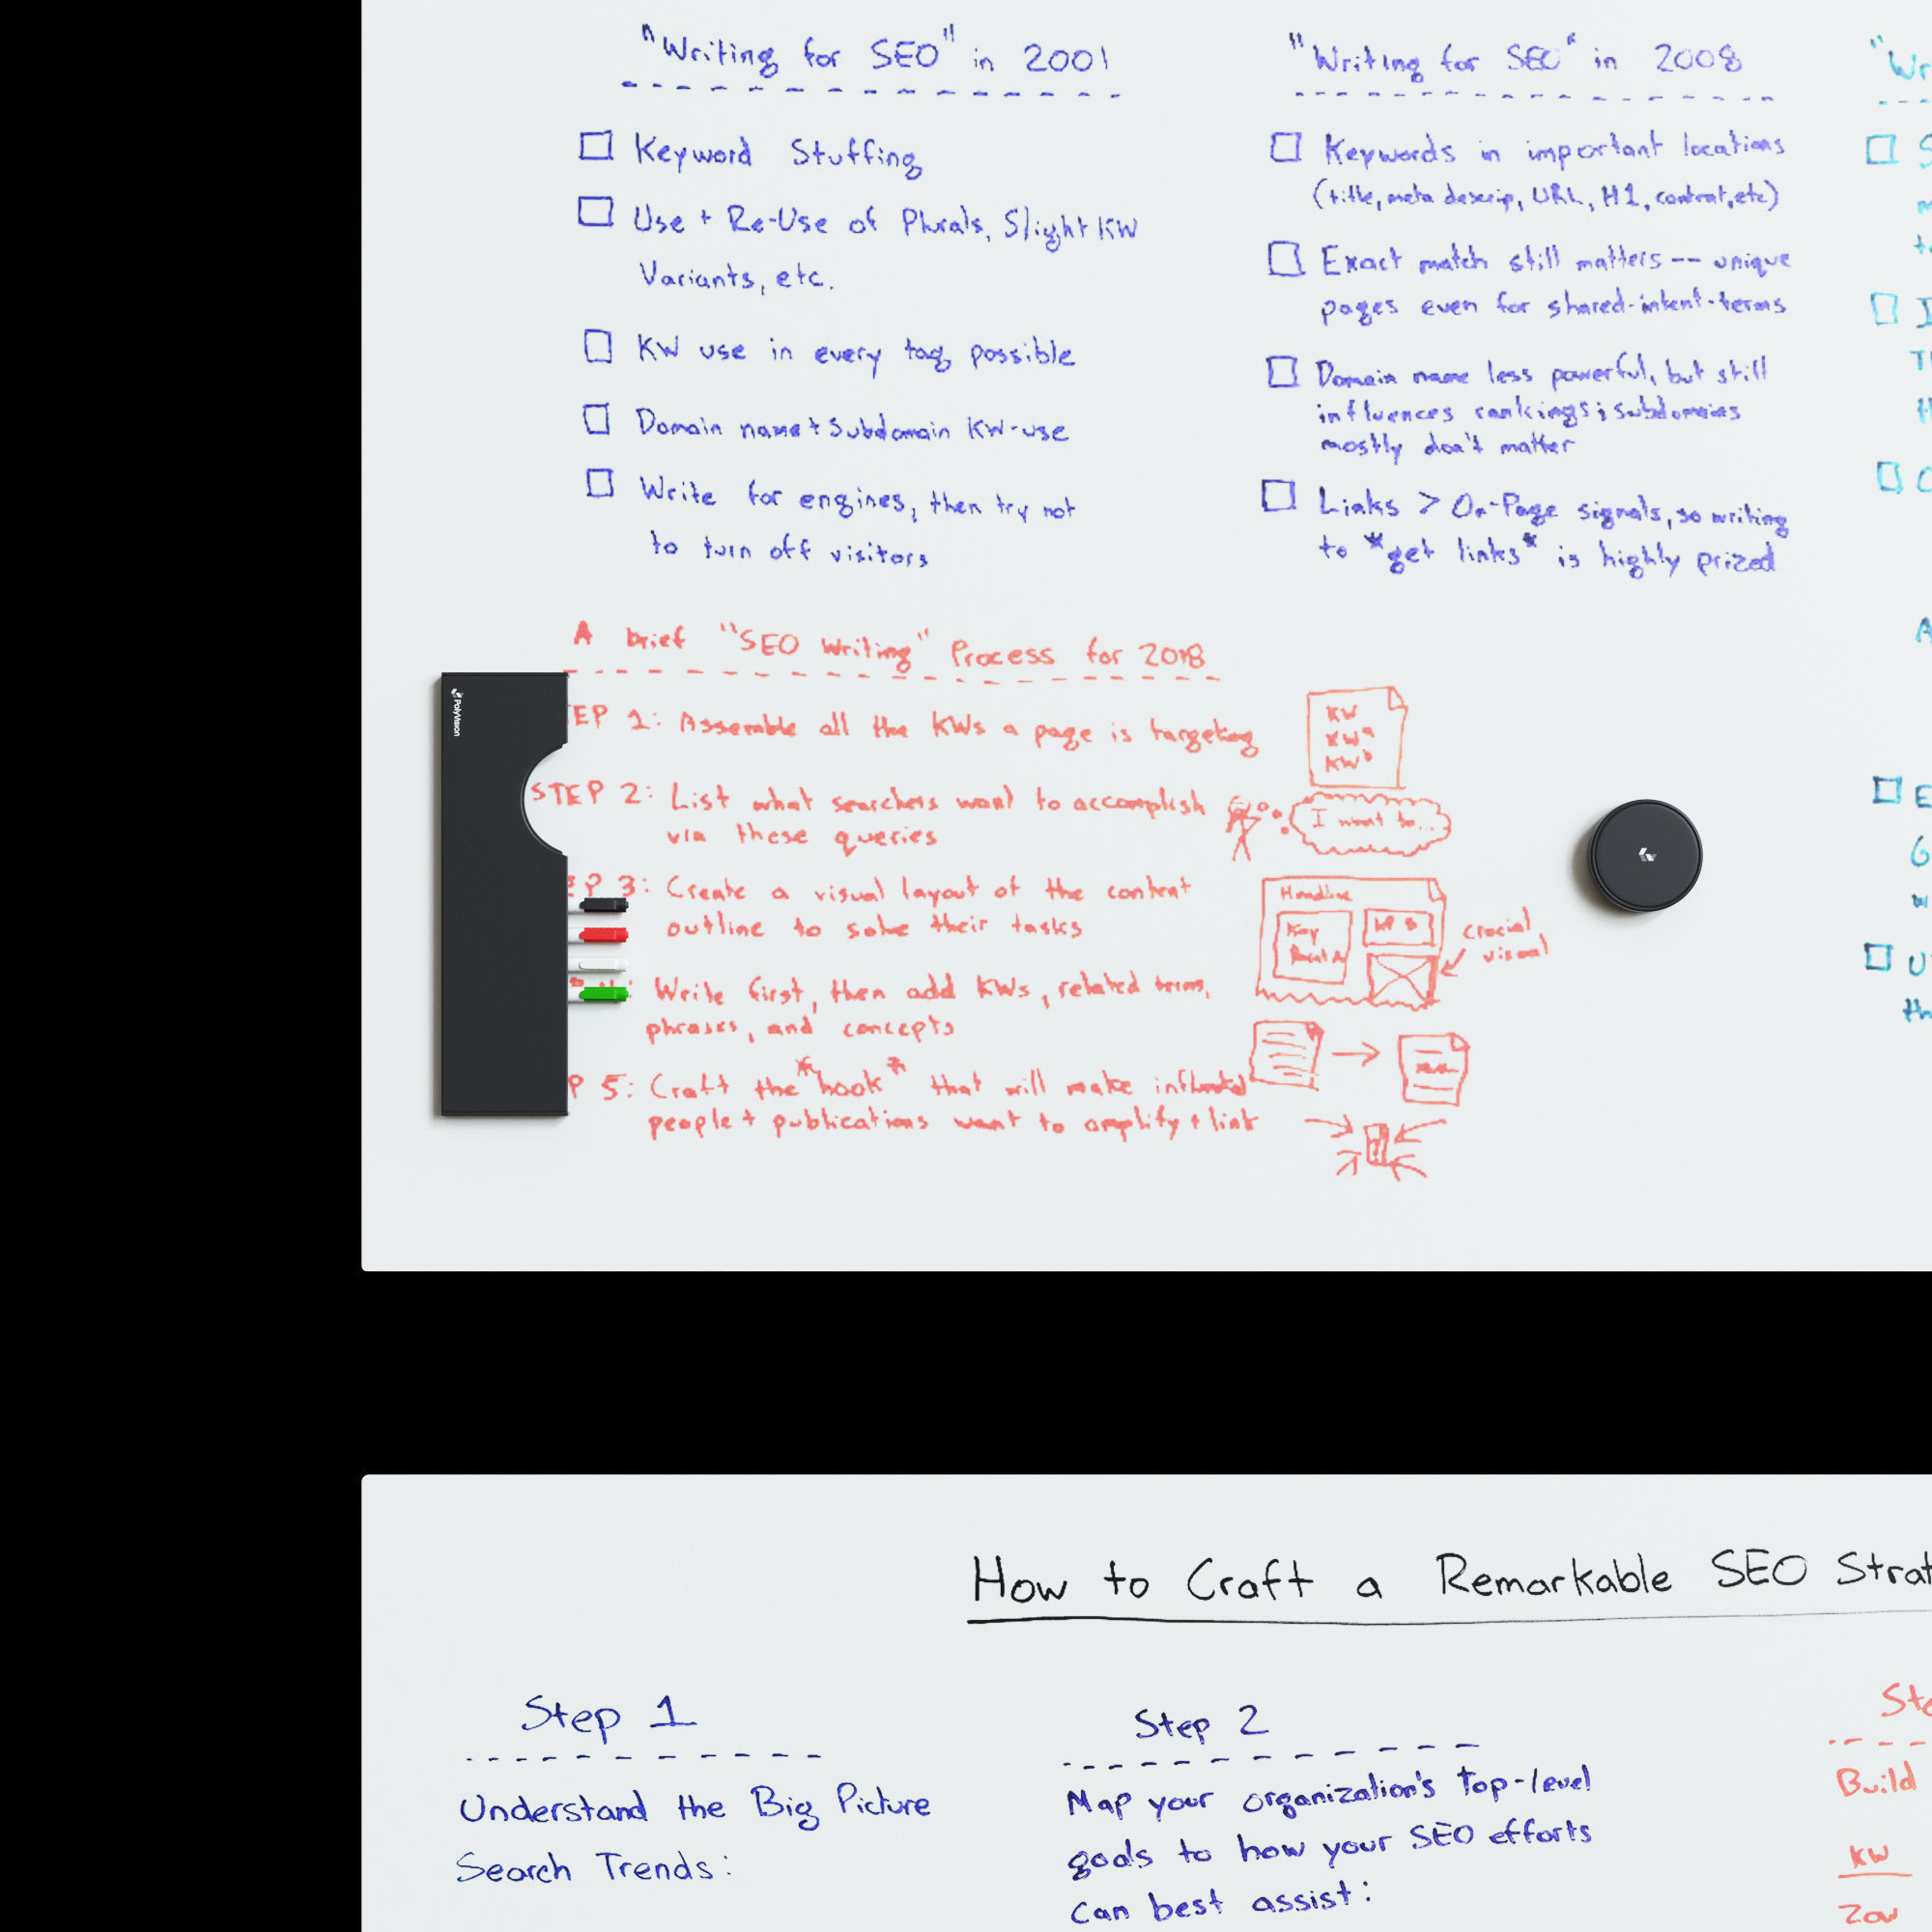 "Writing for SEO" in 2001
Keyword Stuffing
Use + Re-Use of Plurals, Slight KW
Variants, etc.
KW use in every tag possible
Domain name + Subdomain KW-use
Write for engines, then try not
to turn off visitors
"Writing for SEO" in 2008
Keywords in important locations
(title, meta descrip, URL, H1, content, etc)
Exact match still matters -- unique
pages even for shared-intent-terms
Domain name less powerful, but still
influences rankings; subdomains
mostly don't matter
Links > On-Page signals, so writing
to *get links* is highly prized
"Wr
A brief "SEO Writing" Process for 2018
EP 1: Assemble all the KWs a page is targeting
KW
KWᵃ
KWᵇ
STEP 2: List what searchers want to accomplish
via these queries
I want to...
EP 3: Create a visual layout of the content
outline to solve their tasks
Headline
Key
Point A
crucial
visual
Write first, then add KWs, related terms,
phrases, and concepts
P 5: Craft the *hook* that will make influential
people + publications want to amplify + link
PolyVision
How to Craft a Remarkable SEO Strat
Step 1
Understand the Big Picture
Search Trends:
Step 2
Map your organization's top-level
goals to how your SEO efforts
can best assist:
Ste
Build
KW